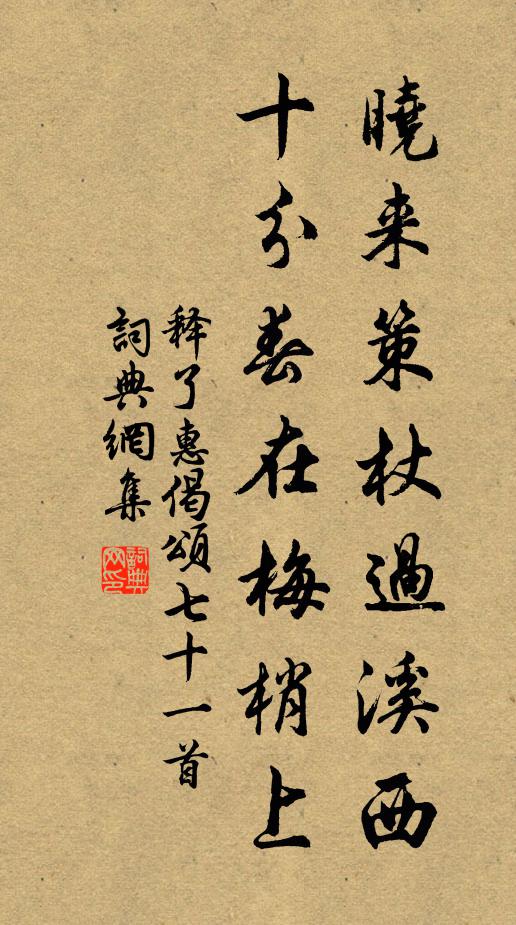 曉来策杖過溪西
十分春在梅梢上
释了惠偈頌七十一首
詞典網集
詞典网印